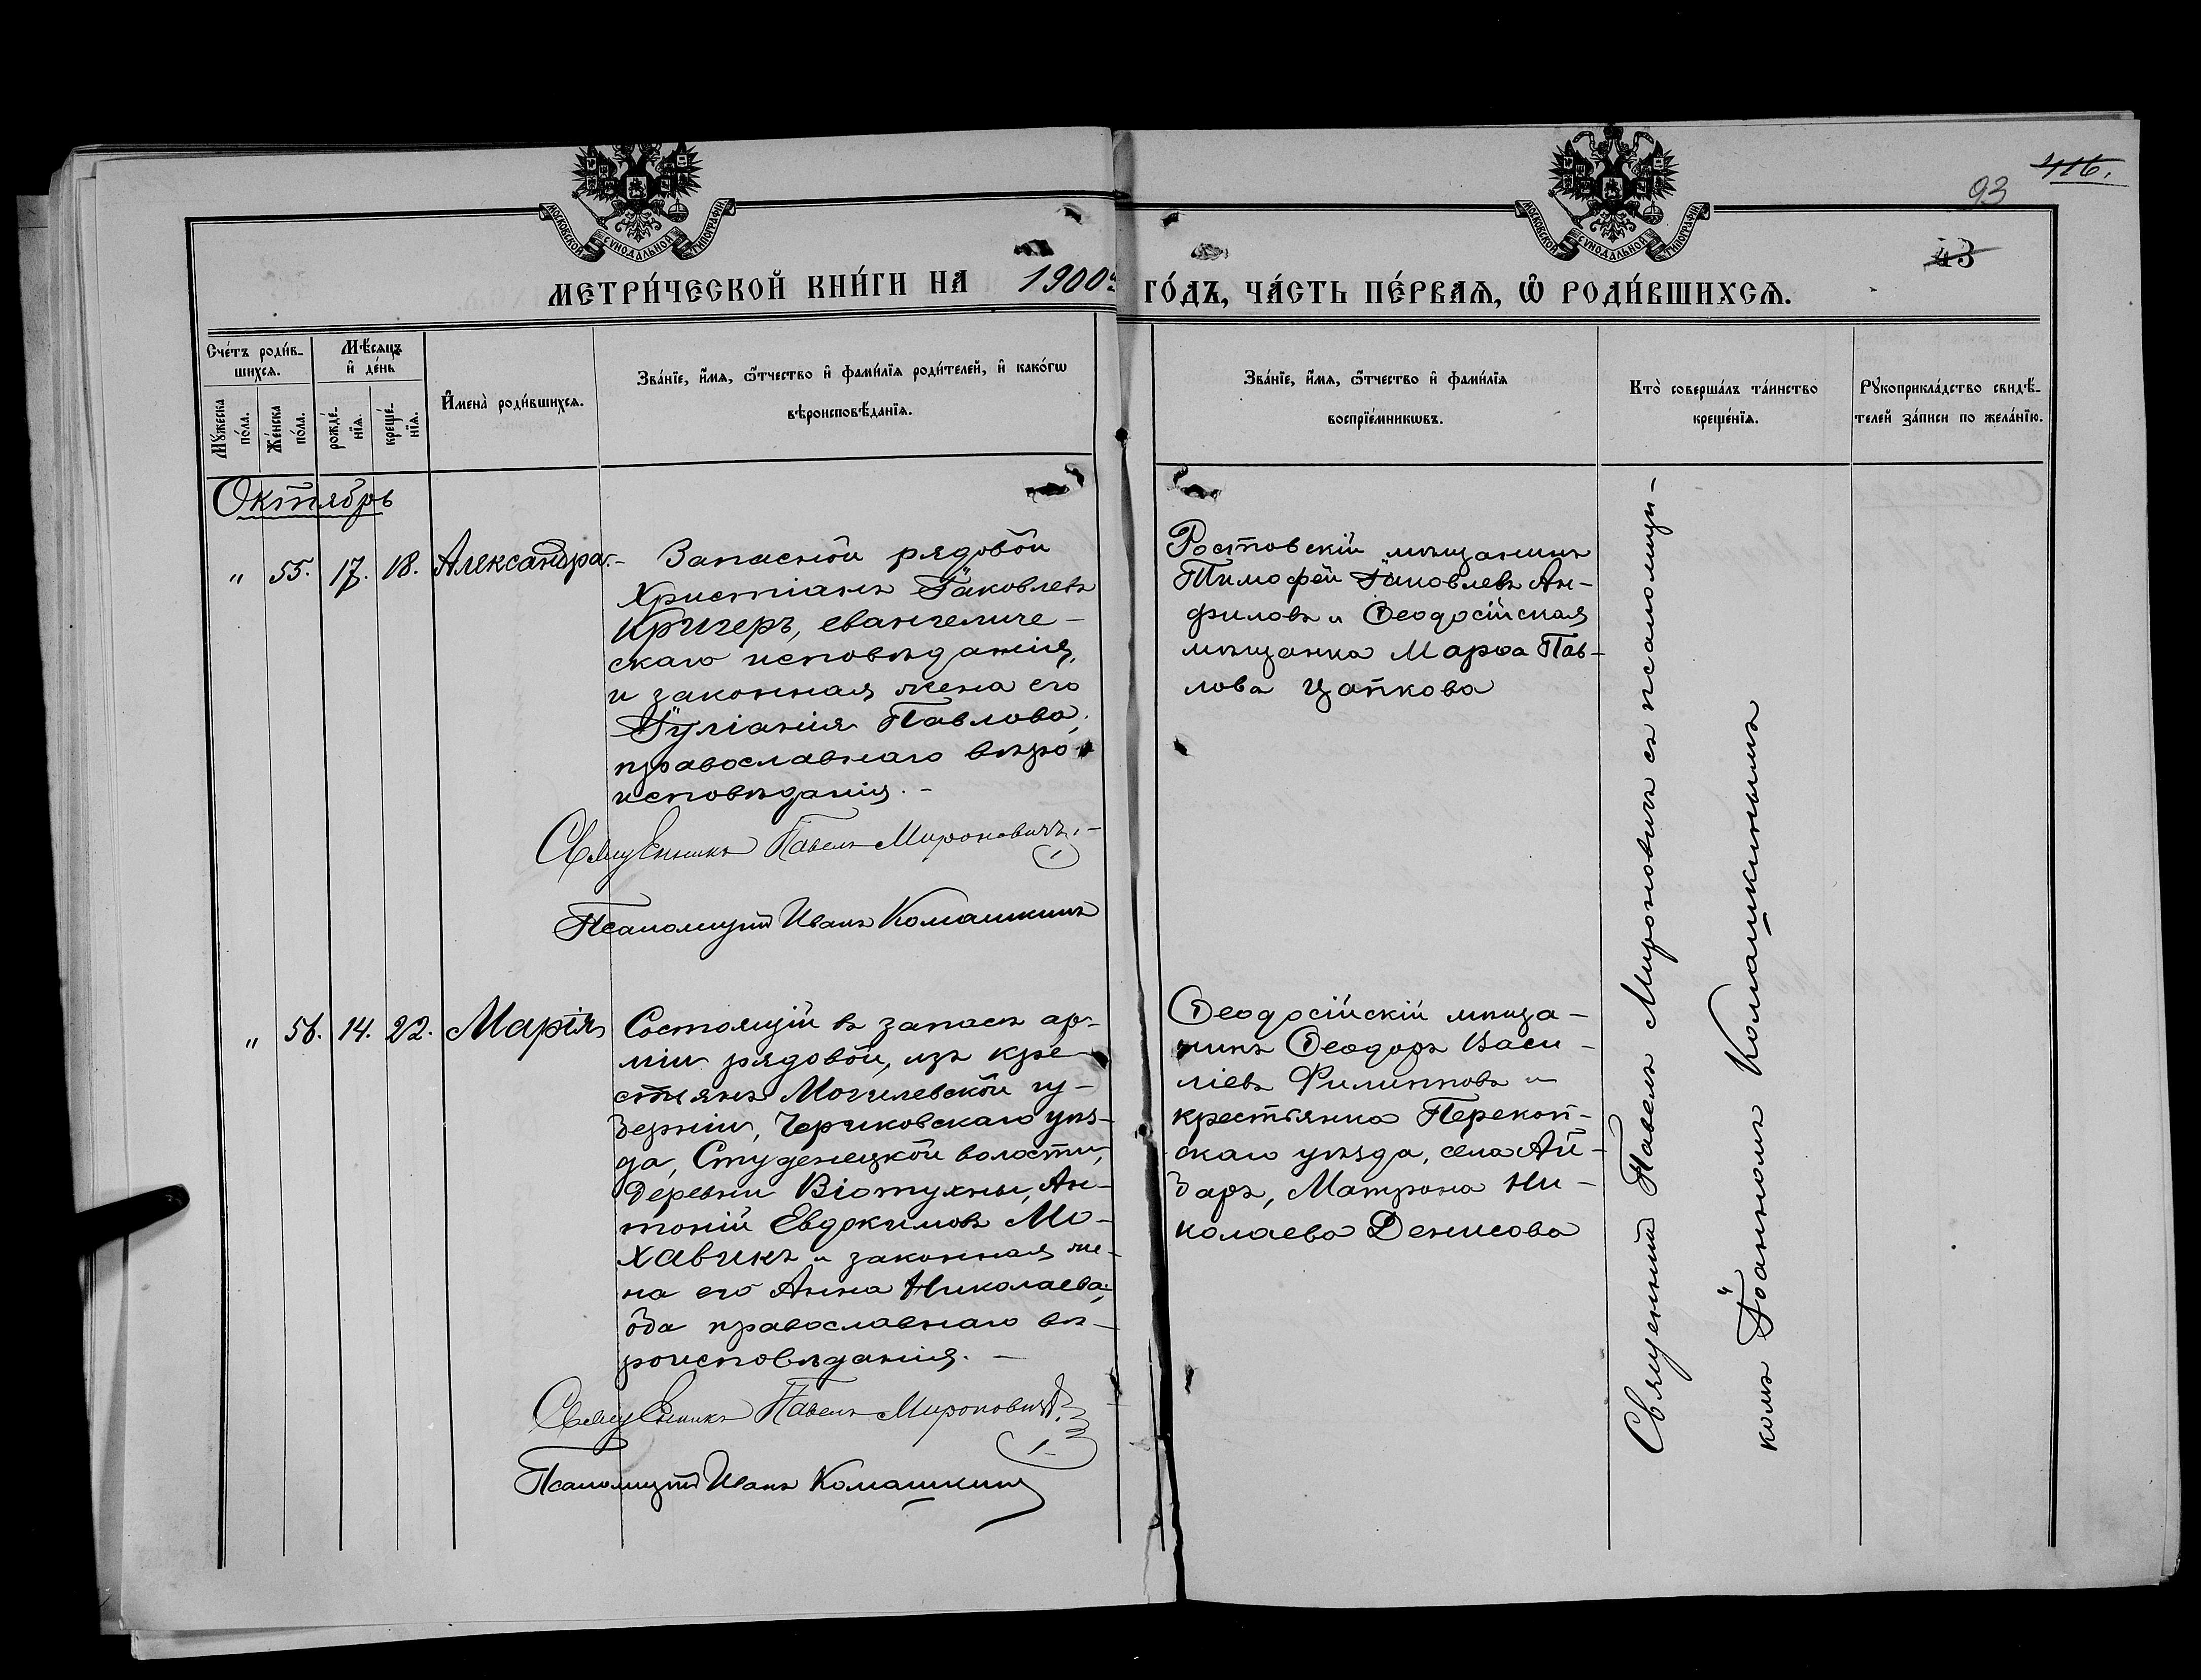 416.
93
43
МОСКОВСКОЙ СѴНОДАЛЬНОЙ ТИПОГРАФІИ
МОСКОВСКОЙ СѴНОДАЛЬНОЙ ТИПОГРАФІИ
МЕТРИ́ЧЕСКОЙ КНИ́ГИ НА 1900й ГО́ДЪ, ЧА́СТЬ ПЕ́РВАѦ, Ѡ҆ РОДИ́ВШИХСѦ.
Сче́тъ роди́в-
шихсѧ.
Мꙋ́жеска
по́ла.
Же́нска
по́ла.
Мѣ́сѧцъ
и҆ де́нь
рожде́-
нїѧ.
креще́-
нїѧ.
И҆мена̀ роди́вшихсѧ.
Зва́нїе, и҆́мѧ, ѻ҆́тчество и҆ фамилїѧ роди́телей, и҆ како́гѡ
вѣроисповѣ́данїѧ.
Зва́нїе, и҆́мѧ, ѻ҆́тчество и҆ фами́лїѧ
воспрїе́мникѡвъ.
Кто̀ соверша́лъ та́инство
креще́нїѧ.
Рꙋкоприкла́дство свидѣ́-
телей за́писи по жела́нїю.
Октябрь
" 55. 17. 18. Александра.-
Запасной рядовой
Христіанъ Іаковлевъ
Кригеръ, евангеличе-
скаго исповѣданія,
и законная жена его
Іуліанія Павлова,
православнаго вѣро
исповѣданія.-
Священникъ Павелъ Мироновичъ.-
Псаломщикъ Иванъ Комашкинъ
Ростовскій мѣщанинъ
Тимофей Іаковлевъ Ан-
филовъ и Ѳеодосійская
мѣщанка Марѳа Пав-
лова Цапкова
" 56. 14. 22. Марія
Состоящій въ запасѣ ар-
міи рядовой, изъ кре-
стьянъ Могилевской гу-
берніи, Чериковскаго уѣз-
да, Студенецкой волости,
деревни Віотухны, Ан-
тоній Евдокимовъ Мо-
хавикъ и законная же-
на его Анна Николаева,
оба православнаго вѣ-
роисповѣданія.-
Священникъ Павелъ Мироновичъ.
Псаломщикъ Иванъ Комашкинъ
Ѳеодосійскій мѣща-
нинъ Ѳеодоръ Васи-
ліевъ Филипповъ и
крестьянка Перекоп-
скаго уѣзда, села Ай-
баръ, Матрона Ни-
колаева Денисова
Священникъ Павелъ Мироновичъ съ псаломщи-
комъ Іоанномъ Комашкинымъ